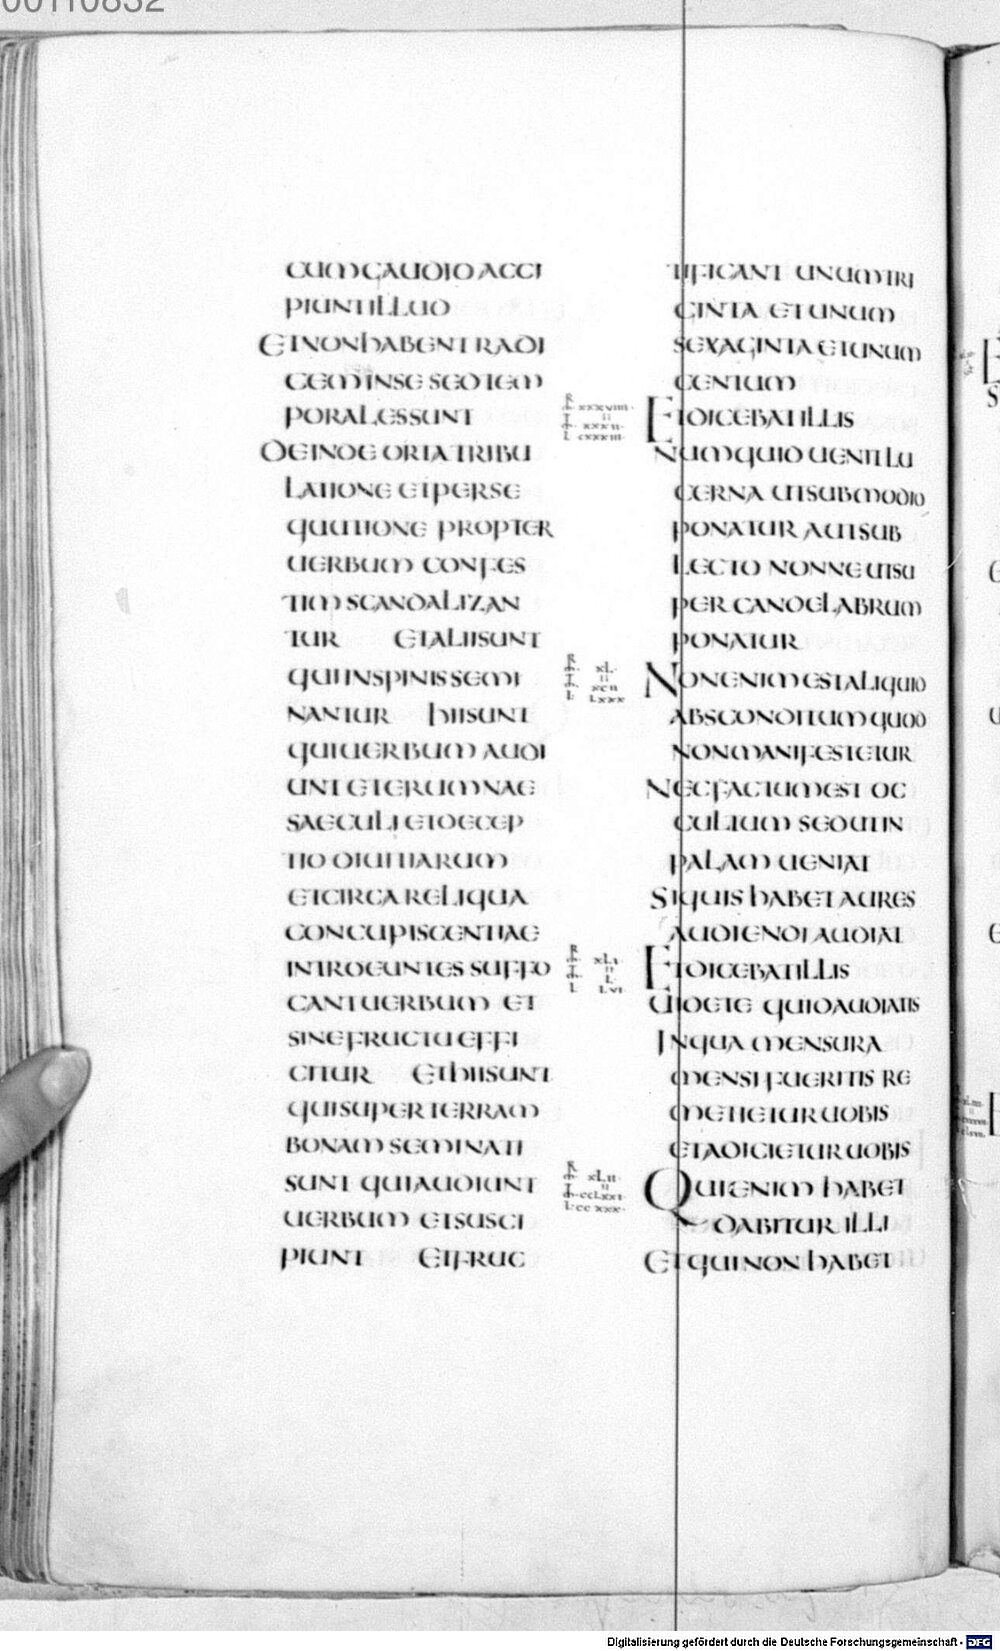 00110832
CUM GAUDIO ACCI
PIUNT ILLUD
ET NON HABENT RADI
CEM IN SE SED TEM
PORALES SUNT
DEINDE ORTA TRIBU
LATIONE ET PERSE
QUUTIONE PROPTER
UERBUM CONFES
TIM SCANDALIZAN
TUR ET ALII SUNT
QUI IN SPINIS SEMI
NANTUR HII SUNT
QUI UERBUM AUDI
UNT ET ERUMNAE
SAECULI ET DECEP
TIO DIUITIARUM
ET CIRCA RELIQUA
CONCUPISCENTIAE
INTROEUNTES SUFFO
CANT UERBUM ET
SINE FRUCTU EFFI
CITUR ET HII SUNT
QUI SUPER TERRAM
BONAM SEMINATI
SUNT QUI AUDIUNT
UERBUM ET SUSCI
PIUNT ET FRUC
TIFICANT UNUM TRI
GINTA ET UNUM
SEXAGINTA ET UNUM
CENTUM
ET DICEBAT ILLIS
NUMQUID UENIT LU
CERNA UT SUB MODIO
PONATUR AUT SUB
LECTO NONNE UT SU
PER CANDELABRUM
PONATUR
NON ENIM EST ALIQUID
ABSCONDITUM QUOD
NON MANIFESTETUR
NEC FACTUM EST OC
CULTUM SED UT IN
PALAM UENIAT
SI QUIS HABET AURES
AUDIENDI AUDIAT
ET DICEBAT ILLIS
UIDETE QUID AUDIATIS
IN QUA MENSURA
MENSI FUERITIS RE
METIETUR UOBIS
ET ADICIETUR UOBIS
QUI ENIM HABET
DABITUR ILLI
ET QUI NON HABET
Digitalisierung gefördert durch die Deutsche Forschungsgemeinschaft - DFG